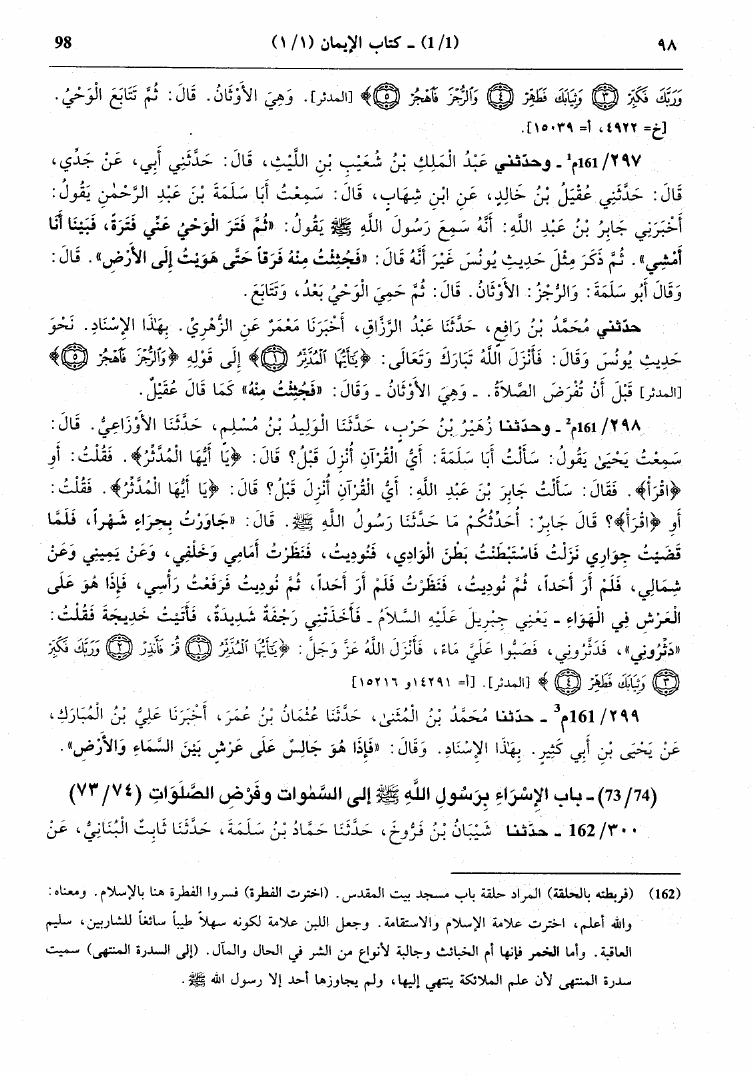 ٩٨ (1/1) ـ كتاب الإيمان (١/١) 98
وَرَبَّكَ فَكَبِّرْ ﴿٣﴾ وَثِيَابَكَ فَطَهِّرْ ﴿٤﴾ وَالرُّجْزَ فَاهْجُرْ ﴿٥﴾﴾ [المدثر]. وَهِيَ الأَوْثَانُ. قَالَ: ثُمَّ تَتَابَعَ الْوَحْيُ.
[خ= ٤٩٢٢، أ= ١٥٠٣٩].
٢٩٧/161م¹ ـ وحدّثني عَبْدُ الْمَلِكِ بْنُ شُعَيْبِ بْنِ اللَّيْثِ، قَالَ: حَدَّثَنِي أَبِي، عَنْ جَدِّي،
قَالَ: حَدَّثَنِي عُقَيْلُ بْنُ خَالِدٍ، عَنِ ابْنِ شِهَابٍ، قَالَ: سَمِعْتُ أَبَا سَلَمَةَ بْنَ عَبْدِ الرَّحْمٰنِ يَقُولُ:
أَخْبَرَنِي جَابِرُ بْنُ عَبْدِ اللَّهِ: أَنَّهُ سَمِعَ رَسُولَ اللَّهِ ﷺ يَقُولُ: «ثُمَّ فَتَرَ الْوَحْيُ عَنِّي فَتْرَةً، فَبَيْنَا أَنَا
أَمْشِي». ثُمَّ ذَكَرَ مِثْلَ حَدِيثِ يُونُسَ غَيْرَ أَنَّهُ قَالَ: «فَجُئِثْتُ مِنْهُ فَرَقاً حَتَّى هَوَيْتُ إِلَى الأَرْضِ». قَالَ:
وَقَالَ أَبُو سَلَمَةَ: وَالرُّجْزُ: الأَوْثَانُ. قَالَ: ثُمَّ حَمِيَ الْوَحْيُ بَعْدُ، وَتَتَابَعَ.
حدّثني مُحَمَّدُ بْنُ رَافِعٍ، حَدَّثَنَا عَبْدُ الرَّزَّاقِ، أَخْبَرَنَا مَعْمَرٌ عَنِ الزُّهْرِيِّ. بِهَذَا الإِسْنَادِ. نَحْوَ
حَدِيثِ يُونُسَ وَقَالَ: فَأَنْزَلَ اللَّهُ تَبَارَكَ وَتَعَالَى: ﴿يَٰأَيُّهَا الْمُدَّثِّرُ ﴿١﴾﴾ إِلَى قَوْلِهِ ﴿وَالرُّجْزَ فَاهْجُرْ ﴿٥﴾﴾
[المدثر] قَبْلَ أَنْ تُفْرَضَ الصَّلاَةُ. ـ وَهِيَ الأَوْثَانُ ـ وَقَالَ: «فَجُئِثْتُ مِنْهُ» كَمَا قَالَ عُقَيْلٌ.
٢٩٨/161م² ـ وحدّثنا زُهَيْرُ بْنُ حَرْبٍ، حَدَّثَنَا الْوَلِيدُ بْنُ مُسْلِمٍ، حَدَّثَنَا الأَوْزَاعِيُّ. قَالَ:
سَمِعْتُ يَحْيَىٰ يَقُولُ: سَأَلْتُ أَبَا سَلَمَةَ: أَيُّ الْقُرْآنِ أُنْزِلَ قَبْلُ؟ قَالَ: ﴿يَا أَيُّهَا الْمُدَّثِّرُ﴾. فَقُلْتُ: أَوِ
﴿اقْرَأْ﴾. فَقَالَ: سَأَلْتُ جَابِرَ بْنَ عَبْدِ اللَّهِ: أَيُّ الْقُرْآنِ أُنْزِلَ قَبْلُ؟ قَالَ: ﴿يَا أَيُّهَا الْمُدَّثِّرُ﴾. فَقُلْتُ:
أَوِ ﴿اقْرَأْ﴾؟ قَالَ جَابِرٌ: أُحَدِّثُكُمْ مَا حَدَّثَنَا رَسُولُ اللَّهِ ﷺ. قَالَ: «جَاوَرْتُ بِحِرَاءٍ شَهْراً، فَلَمَّا
قَضَيْتُ جِوَارِي نَزَلْتُ فَاسْتَبْطَنْتُ بَطْنَ الْوَادِي، فَنُودِيتُ، فَنَظَرْتُ أَمَامِي وَخَلْفِي، وَعَنْ يَمِينِي وَعَنْ
شِمَالِي، فَلَمْ أَرَ أَحَداً، ثُمَّ نُودِيتُ، فَنَظَرْتُ فَلَمْ أَرَ أَحَداً، ثُمَّ نُودِيتُ فَرَفَعْتُ رَأْسِي، فَإِذَا هُوَ عَلَى
الْعَرْشِ فِي الْهَوَاءِ ـ يَعْنِي جِبْرِيلَ عَلَيْهِ السَّلاَمُ ـ فَأَخَذَتْنِي رَجْفَةٌ شَدِيدَةٌ، فَأَتَيْتُ خَدِيجَةَ فَقُلْتُ:
«دَثِّرُونِي»، فَدَثَّرُونِي، فَصَبُّوا عَلَيَّ مَاءً، فَأَنْزَلَ اللَّهُ عَزَّ وَجَلَّ: ﴿يَٰأَيُّهَا الْمُدَّثِّرُ ﴿١﴾ قُمْ فَأَنْذِرْ ﴿٢﴾ وَرَبَّكَ فَكَبِّرْ
﴿٣﴾ وَثِيَابَكَ فَطَهِّرْ ﴿٤﴾﴾ [المدثر]. [أ= ١٤٢٩١ و ١٥٢١٦]
٢٩٩/161م³ ـ حدّثنا مُحَمَّدُ بْنُ الْمُثَنَّىٰ، حَدَّثَنَا عُثْمَانُ بْنُ عُمَرَ، أَخْبَرَنَا عَلِيُّ بْنُ الْمُبَارَكِ،
عَنْ يَحْيَى بْنِ أَبِي كَثِيرٍ. بِهَذَا الإِسْنَادِ. وَقَالَ: «فَإِذَا هُوَ جَالِسٌ عَلَى عَرْشٍ بَيْنَ السَّمَاءِ وَالأَرْضِ».
(73/74) ـ باب الإِسْرَاءِ بِرَسُولِ اللَّهِ ﷺ إلى السَّمٰوات وفَرْضِ الصَّلَوَاتِ (٧٣/٧٤)
٣٠٠/162 ـ حدّثنا شَيْبَانُ بْنُ فَرُّوخَ، حَدَّثَنَا حَمَّادُ بْنُ سَلَمَةَ، حَدَّثَنَا ثَابِتٌ الْبُنَانِيُّ، عَنْ
(162) (فربطته بالحلقة) المراد حلقة باب مسجد بيت المقدس. (اخترت الفطرة) فسروا الفطرة هنا بالإسلام. ومعناه:
والله أعلم، اخترت علامة الإسلام والاستقامة. وجعل اللبن علامة لكونه سهلاً طيباً سائغاً للشاربين، سليم
العاقبة. وأما الخمر فإنها أم الخبائث وجالبة لأنواع من الشر في الحال والمآل. (إلى السدرة المنتهى) سميت
سدرة المنتهى لأن علم الملائكة ينتهي إليها، ولم يجاوزها أحد إلا رسول الله ﷺ.